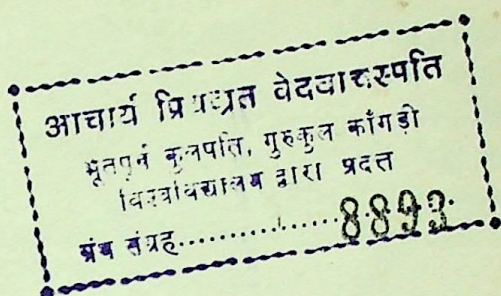 आचार्य प्रियव्रत वेदवाचस्पति
भूतपूर्व कुलपति, गुरुकुल काँगड़ी
विश्वविद्यालय द्वारा प्रदत्त
ग्रंथ संग्रह..................8893.